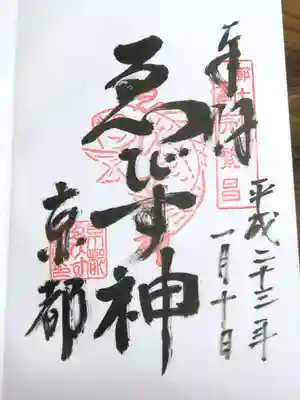 奉拝
平成二十三年
一月十日
ゑびす神
京都